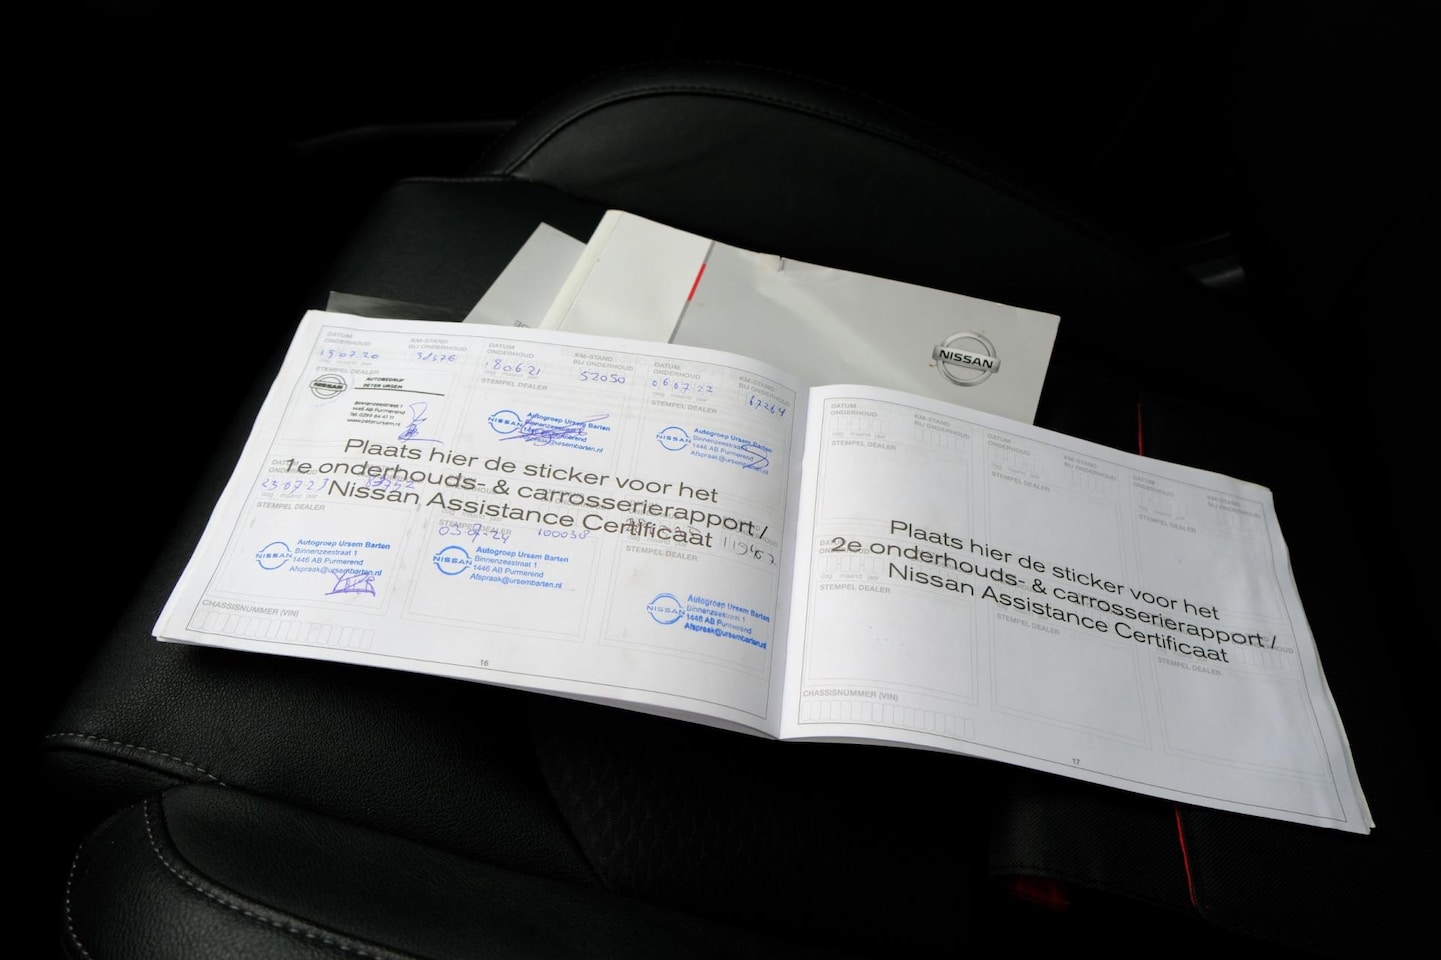 NISSAN
DATUM ONDERHOUD
KM-STAND BIJ ONDERHOUD
DATUM ONDERHOUD
KM-STAND BIJ ONDERHOUD
DATUM ONDERHOUD
KM-STAND BIJ ONDERHOUD
180621
52050
060722
67264
dag maand jaar
STEMPEL DEALER
STEMPEL DEALER
STEMPEL DEALER
NISSAN
AUTOBEDRIJF
PETER URSEM
Binnenzeestraat 1
1446 AB Purmerend
Tel. 0299 64 41 11
www.peterursem.nl
NISSAN
Autogroep Ursem Barten
Binnenzeestraat
1446 AB Purmerend
NISSAN
Autogroep Ursem Barten
Binnenzeestraat
1446 AB Purmerend
Afspraak@ursembarten.nl
Plaats hier de sticker voor het
1e onderhouds- & carrosserierapport /
Nissan Assistance Certificaat
dag maand jaar
STEMPEL DEALER
STEMPEL DEALER
STEMPEL DEALER
100038
NISSAN
Autogroep Ursem Barten
Binnenzeestraat 1
1446 AB Purmerend
Afspraak@ursembarten.nl
NISSAN
Autogroep Ursem Barten
Binnenzeestraat 1
1446 AB Purmerend
Afspraak@ursembarten.nl
NISSAN
Autogroep Ursem Barten
Binnenzeestraat 1
1446 AB Purmerend
Afspraak@ursembarten.nl
CHASSISNUMMER (VIN)
16
DATUM ONDERHOUD
KM-STAND BIJ ONDERHOUD
DATUM ONDERHOUD
KM-STAND BIJ ONDERHOUD
DATUM ONDERHOUD
dag maand jaar
STEMPEL DEALER
STEMPEL DEALER
STEMPEL DEALER
Plaats hier de sticker voor het
2e onderhouds- & carrosserierapport /
Nissan Assistance Certificaat
dag maand jaar
STEMPEL DEALER
STEMPEL DEALER
STEMPEL DEALER
CHASSISNUMMER (VIN)
17